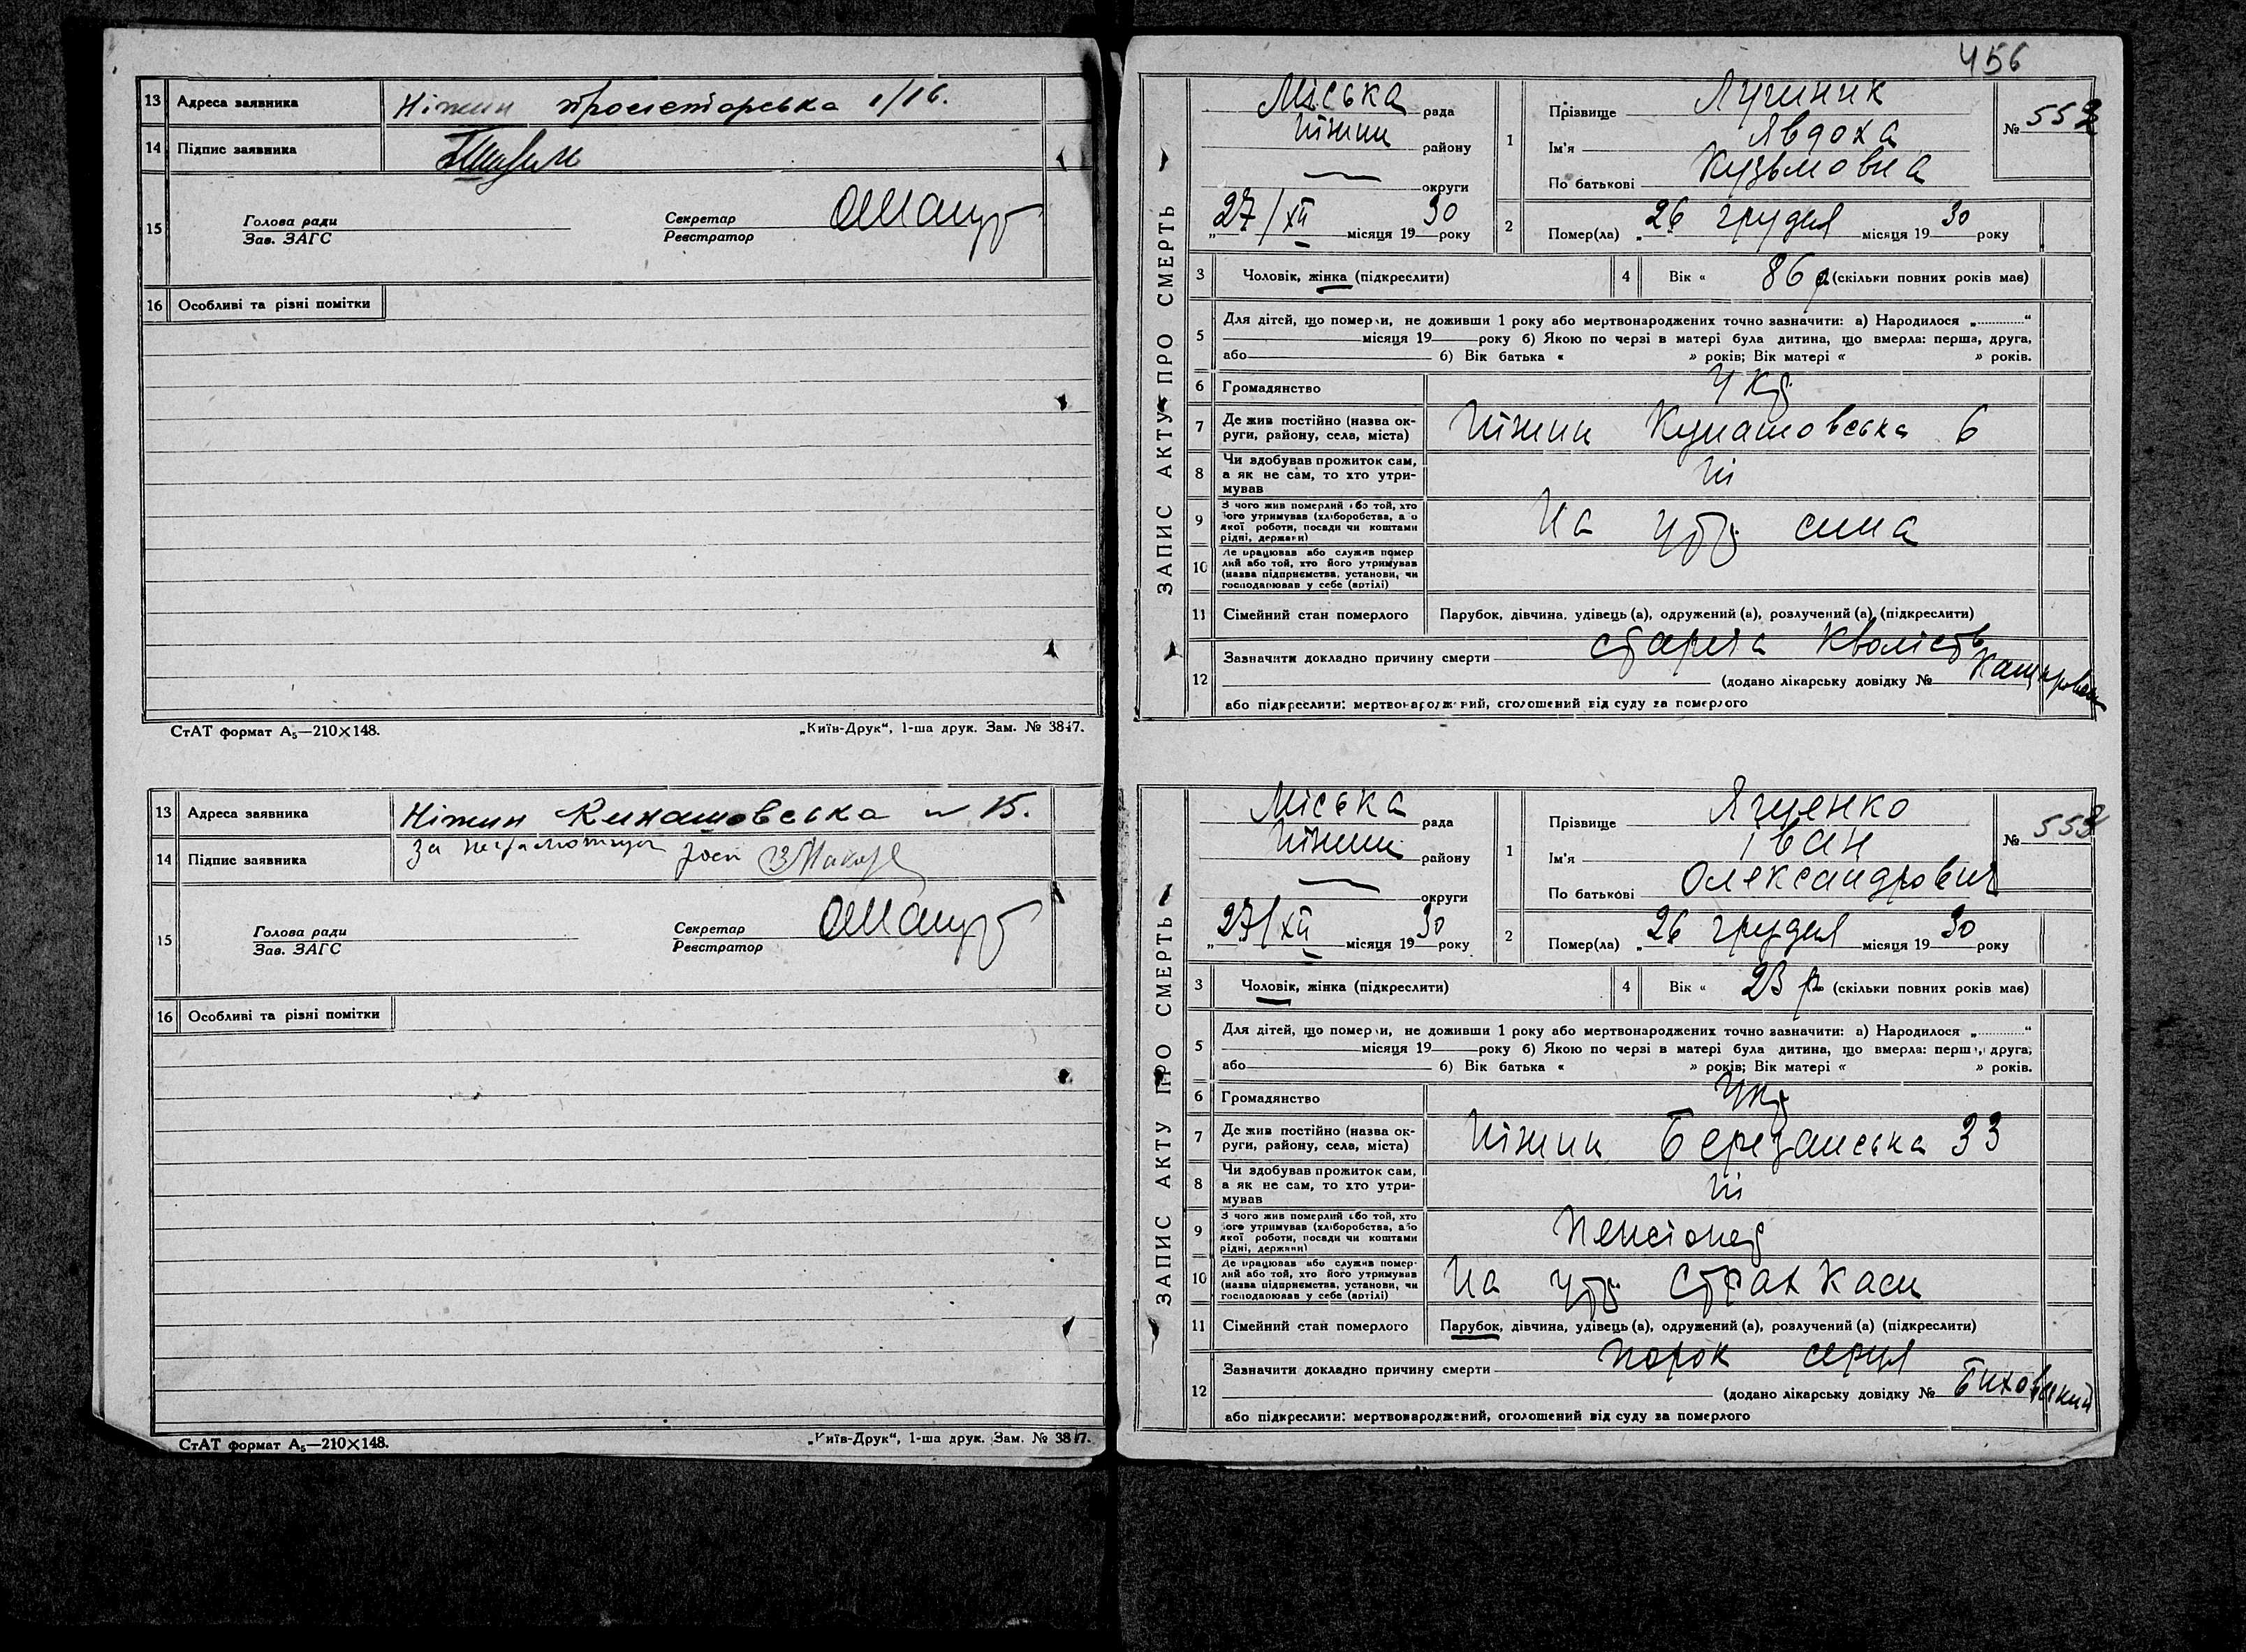 13 Адреса заявника Ніжин пролетарська 1/16.
14 Підпис заявника
15 Голова ради Секретар
Зав. ЗАГС Реєстратор
16 Особливі та різні помітки
СтАТ формат А5—210×148. „Київ-Друк“, 1-ша друк. Зам. № 3847.
13 Адреса заявника Ніжин Кунашовська № 15.
14 Підпис заявника за неграмотную
15 Голова ради Секретар
Зав. ЗАГС Реєстратор
16 Особливі та різні помітки
СтАТ формат А5—210×148. „Київ-Друк“, 1-ша друк. Зам. № 3847.
456
ЗАПИС АКТУ ПРО СМЕРТЬ
Міська рада
Ніжин району
округи
27/XII місяця 1930 року
1 Прізвище
Ім'я Явдоха
По батькові Кузьмовна
№ 552
2 Помер(ла) „26 грудня місяця 1930 року
3 Чоловік, жінка (підкреслити) 4 Вік « 86 р (скільки повних років має)
5 Для дітей, що померли, не доживши 1 року або мертвонароджених точно зазначити: а) Народилося „ “
місяця 19 року б) Якою по черзі в матері була дитина, що вмерла: перша, друга,
або б) Вік батька « » років; Вік матері « » років.
6 Громадянство Укр
7 Де жив постійно (назва ок-
руги, району, села, міста) Ніжин Кунашовська 6
8 Чи здобував прожиток сам,
а як не сам, то хто утри-
мував Ні
9 З чого жив померлий або той, хто
його утримував (хліборобства, або
якої роботи, посади чи коштами
рідні, держави) На утр сина
10 Де працював або служив помер
лий або той, хто його утримував
(назва підприємства, установи, чи
господарював у себе (артілі)
11 Сімейний стан померлого Парубок, дівчина, удівець (а), одружений (а), розлучений (а) (підкреслити)
12 Зазначити докладно причину смерти старча кволість
(додано лікарську довідку №
або підкреслити: мертвонароджений, оголошений від суду за померлого
ЗАПИС АКТУ ПРО СМЕРТЬ
Міська рада
Ніжин району
округи
27/XII місяця 1930 року
1 Прізвище Ященко
Ім'я Іван
По батькові Олександрович
№ 553
2 Помер(ла) „26 грудня місяця 1930 року
3 Чоловік, жінка (підкреслити) 4 Вік « 23 р (скільки повних років має)
5 Для дітей, що померли, не доживши 1 року або мертвонароджених точно зазначити: а) Народилося „ “
місяця 19 року б) Якою по черзі в матері була дитина, що вмерла: перша, друга,
або б) Вік батька « » років; Вік матері « » років.
6 Громадянство Укр
7 Де жив постійно (назва ок-
руги, району, села, міста) Ніжин Березанська 33
8 Чи здобував прожиток сам,
а як не сам, то хто утри-
мував Ні
9 З чого жив померлий або той, хто
його утримував (хліборобства, або
якої роботи, посади чи коштами
рідні, держави) Пенсіонер
10 Де працював або служив помер-
лий або той, хто його утримував
(назва підприємства, установи, чи
господарював у себе (артілі) На утр страхкаси
11 Сімейний стан померлого Парубок, дівчина, удівець (а), одружений (а), розлучений (а) (підкреслити)
12 Зазначити докладно причину смерти порок серця
(додано лікарську довідку № Биховський
або підкреслити: мертвонароджений, оголошений від суду за померлого